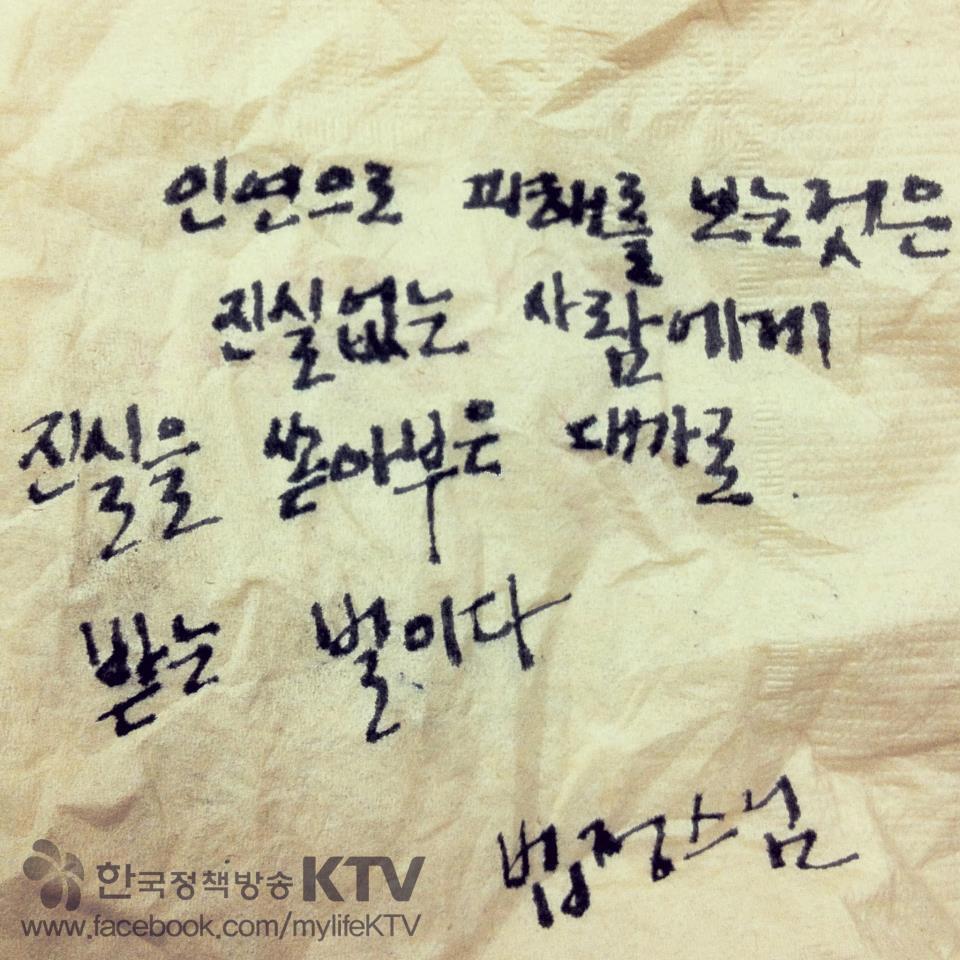 인연으로 피해를 보는것은
진실없는 사람에게
진실을 쏟아부은 대가로.
받는 벌이다
법정스님
한국정책방송 KTV
www.facebook.com/mylifeKTV